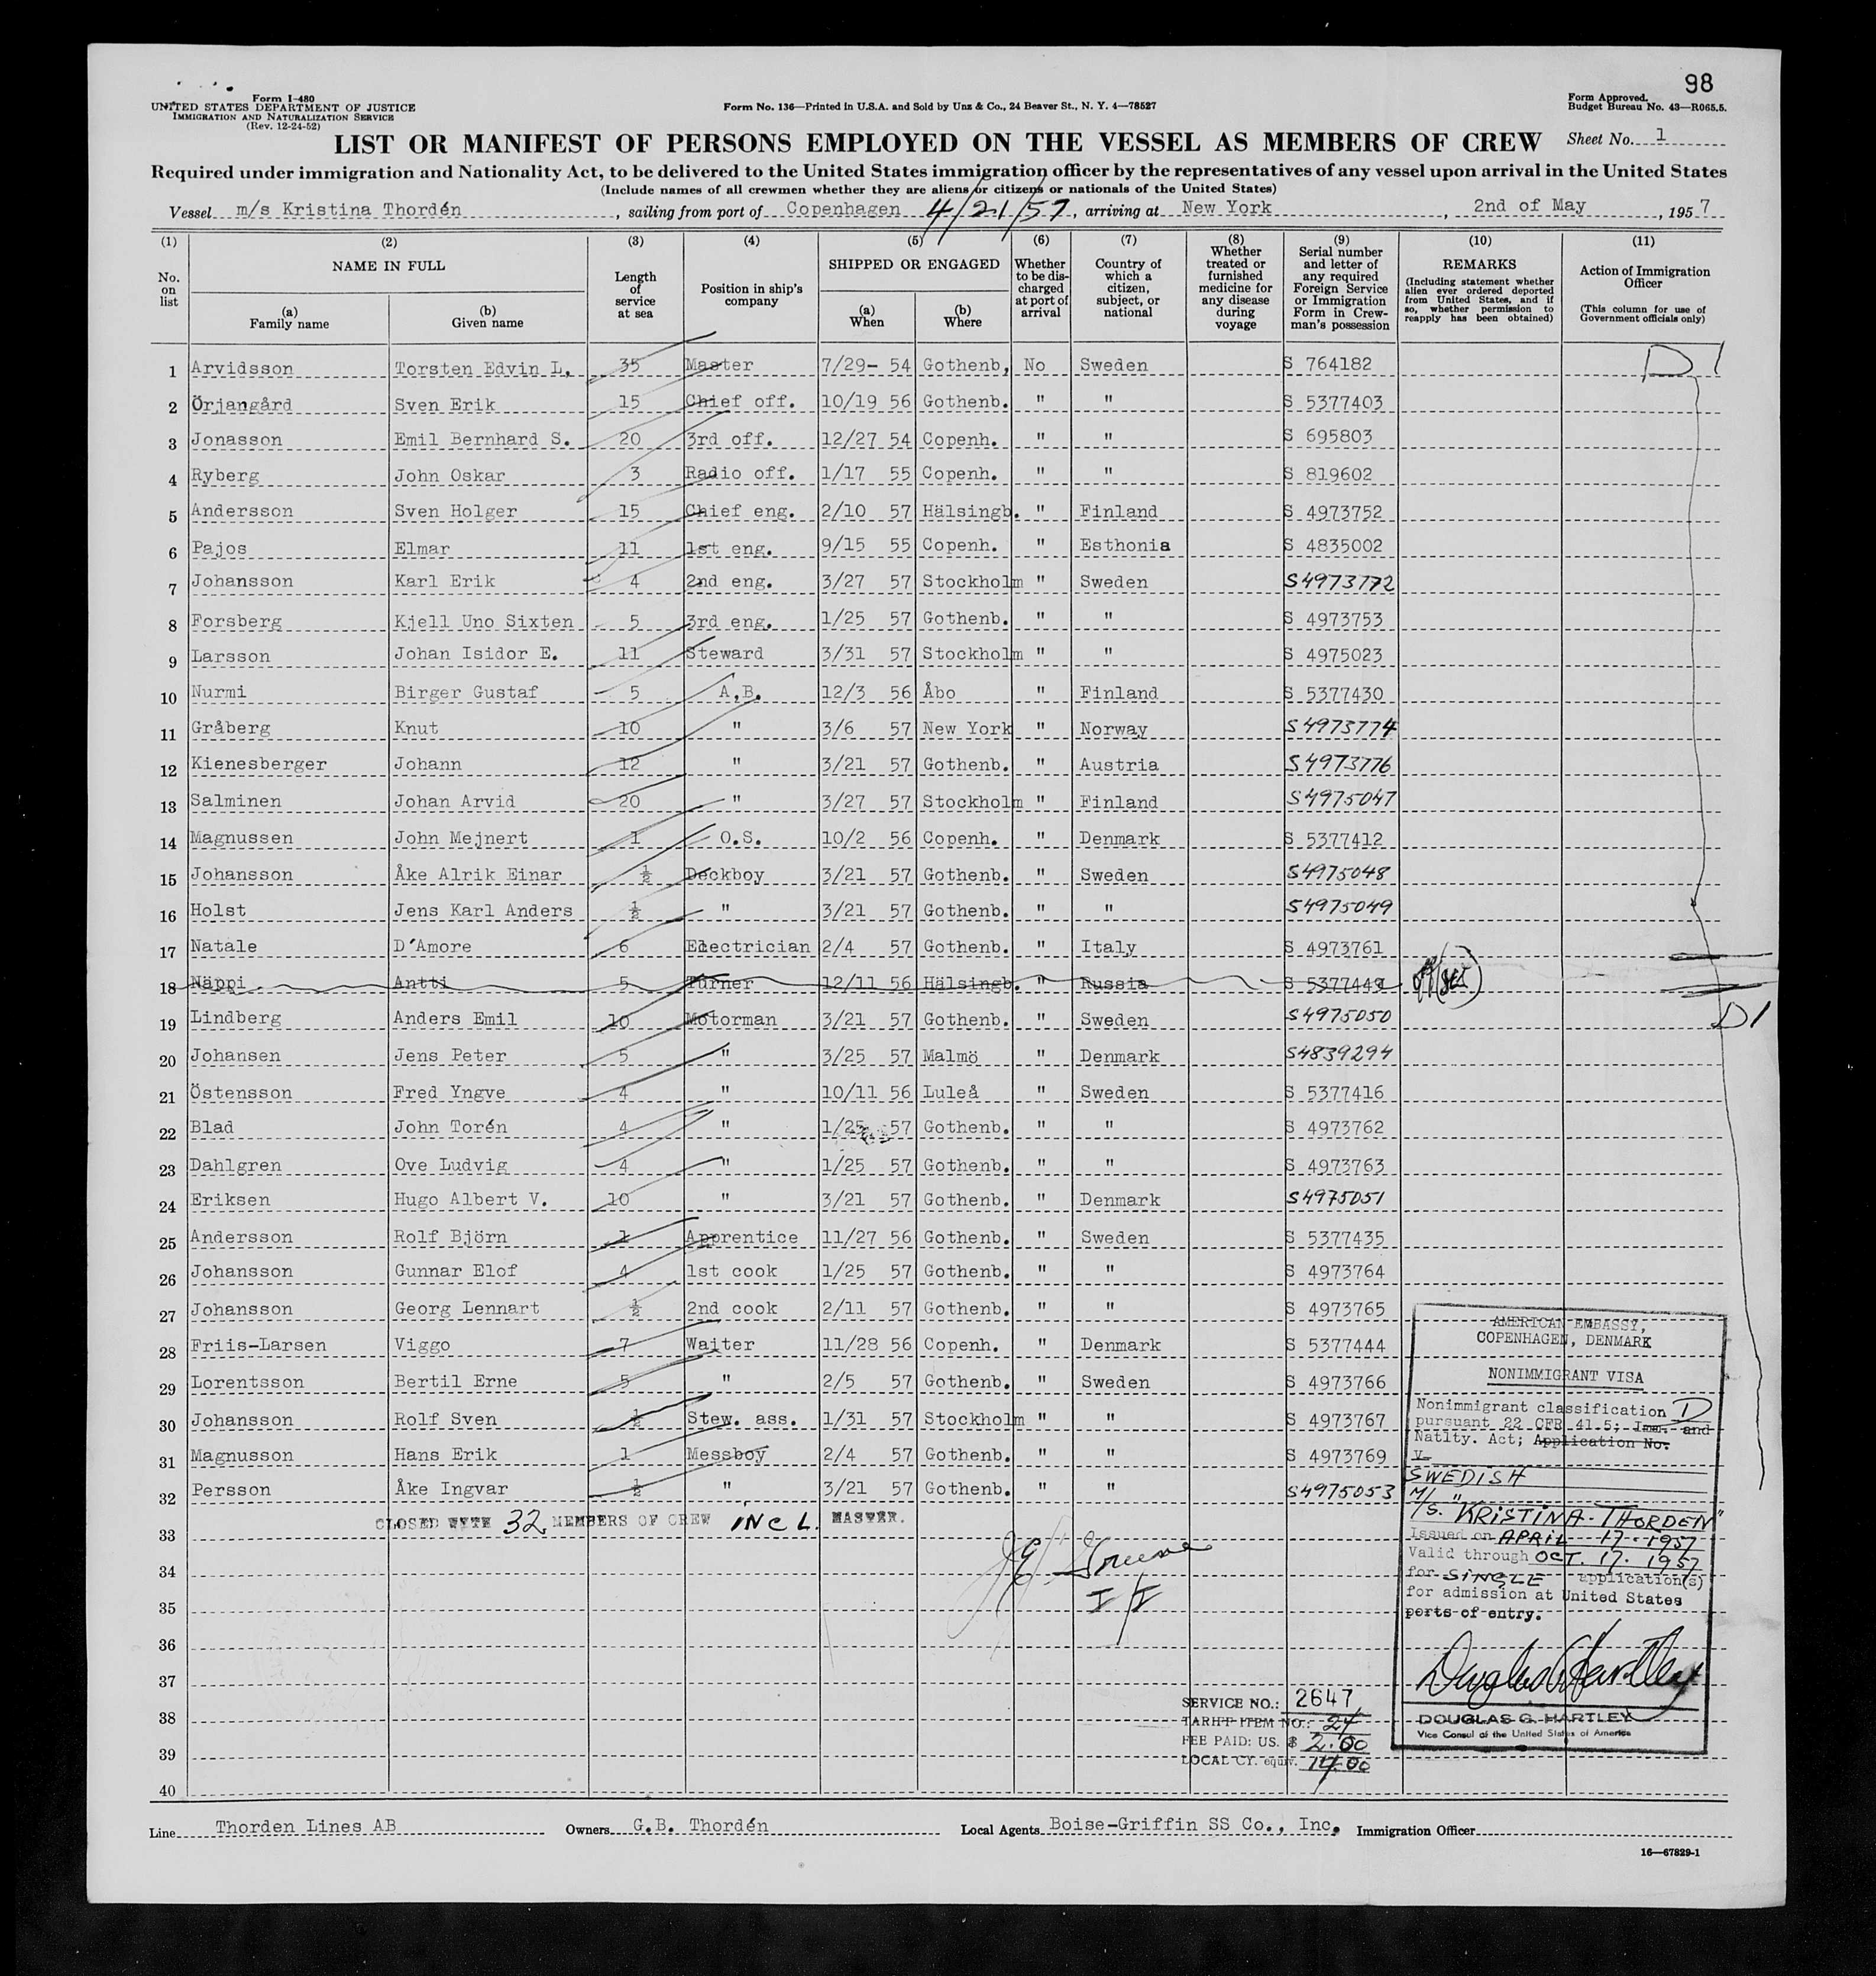 98
Form I-480
UNITED STATES DEPARTMENT OF JUSTICE
IMMIGRATION AND NATURALIZATION SERVICE
(Rev. 12-24-52)
Form No. 136—Printed in U.S.A. and Sold by Unz & Co., 24 Beaver St., N. Y. 4—78527
Form Approved.
Budget Bureau No. 43—R065.5.
LIST OR MANIFEST OF PERSONS EMPLOYED ON THE VESSEL AS MEMBERS OF CREW
Sheet No. 1
Required under immigration and Nationality Act, to be delivered to the United States immigration officer by the representatives of any vessel upon arrival in the United States
(Include names of all crewmen whether they are aliens or citizens or nationals of the United States)
Vessel m/s Kristina Thordén, sailing from port of Copenhagen 4/21/57, arriving at New York, 2nd of May, 1957
(1) (2) (3) (4) (5) (6) (7) (8) (9) (10) (11)
No. on list
NAME IN FULL
(a) Family name
(b) Given name
Length of service at sea
Position in ship's company
SHIPPED OR ENGAGED
(a) When
(b) Where
Whether to be discharged at port of arrival
Country of which a citizen, subject, or national
Whether treated or furnished medicine for any disease during voyage
Serial number and letter of any required Foreign Service or Immigration Form in Crewman's possession
REMARKS
(Including statement whether alien ever ordered deported from United States, and if so, whether permission to reapply has been obtained)
Action of Immigration Officer
(This column for use of Government officials only)
1 Arvidsson Torsten Edvin L. 35 Master 7/29- 54 Gothenb, No Sweden S 764182 D 1
2 Örjangård Sven Erik 15 Chief off. 10/19 56 Gothenb. " " S 5377403
3 Jonasson Emil Bernhard S. 20 3rd off. 12/27 54 Copenh. " " S 695803
4 Ryberg John Oskar 3 Radio off. 1/17 55 Copenh. " " S 819602
5 Andersson Sven Holger 15 Chief eng. 2/10 57 Hälsingb. " Finland S 4973752
6 Pajos Elmar 11 1st eng. 9/15 55 Copenh. " Esthonia S 4835002
7 Johansson Karl Erik 4 2nd eng. 3/27 57 Stockholm " Sweden S4973772
8 Forsberg Kjell Uno Sixten 5 3rd eng. 1/25 57 Gothenb. " " S 4973753
9 Larsson Johan Isidor E. 11 Steward 3/31 57 Stockholm " " S 4975023
10 Nurmi Birger Gustaf 5 A.B. 12/3 56 Åbo " Finland S 5377430
11 Gråberg Knut 10 " 3/6 57 New York " Norway S4973774
12 Kienesberger Johann 12 " 3/21 57 Gothenb. " Austria S4973776
13 Salminen Johan Arvid 20 " 3/27 57 Stockholm " Finland S4975047
14 Magnussen John Mejnert 1 O.S. 10/2 56 Copenh. " Denmark S 5377412
15 Johansson Åke Alrik Einar ½ Deckboy 3/21 57 Gothenb. " Sweden S4975048
16 Holst Jens Karl Anders ½ " 3/21 57 Gothenb. " " S4975049
17 Natale D'Amore 6 Electrician 2/4 57 Gothenb. " Italy S 4973761
18 Näppi Antti 5 Turner 12/11 56 Hälsingb. " Russia S 5377449
19 Lindberg Anders Emil 10 Motorman 3/21 57 Gothenb. " Sweden S4975050 D1
20 Johansen Jens Peter 5 " 3/25 57 Malmö " Denmark S4839294
21 Östensson Fred Yngve 4 " 10/11 56 Luleå " Sweden S 5377416
22 Blad John Torén 4 " 1/25 57 Gothenb. " " S 4973762
23 Dahlgren Ove Ludvig 4 " 1/25 57 Gothenb. " " S 4973763
24 Eriksen Hugo Albert V. 10 " 3/21 57 Gothenb. " Denmark S4975051
25 Andersson Rolf Björn 1 Apprentice 11/27 56 Gothenb. " Sweden S 5377435
26 Johansson Gunnar Elof 4 1st cook 1/25 57 Gothenb. " " S 4973764
27 Johansson Georg Lennart ½ 2nd cook 2/11 57 Gothenb. " " S 4973765
28 Friis-Larsen Viggo 7 Waiter 11/28 56 Copenh. " Denmark S 5377444
29 Lorentsson Bertil Erne 5 " 2/5 57 Gothenb. " Sweden S 4973766
30 Johansson Rolf Sven ½ Stew. ass. 1/31 57 Stockholm " " S 4973767
31 Magnusson Hans Erik 1 Messboy 2/4 57 Gothenb. " " S 4973769
32 Persson Åke Ingvar ½ " 3/21 57 Gothenb. " " S4975053
33 CLOSED WITH 32 MEMBERS OF CREW INCL. MASTER.
34
35
36
37
38
39
40
AMERICAN EMBASSY,
COPENHAGEN, DENMARK
NONIMMIGRANT VISA
Nonimmigrant classification D
pursuant 22 CFR 41.5; Imm. and
Natlty. Act; Application No.
V-
SWEDISH
M/S. "KRISTINA-THORDEN"
Issued on APRIL 17. 1957
Valid through OCT. 17. 1957
for SINGLE application(s)
for admission at United States
ports of entry.
Douglas G Hartley
DOUGLAS G. HARTLEY
Vice Consul of the United States of America
SERVICE NO.: 2647
TARIFF ITEM NO.: 24
FEE PAID: US. $ 2.00
LOCAL CY. equiv. 14.00
Line Thorden Lines AB Owners G.B. Thordén Local Agents Boise-Griffin SS Co., Inc. Immigration Officer
16—67829-1